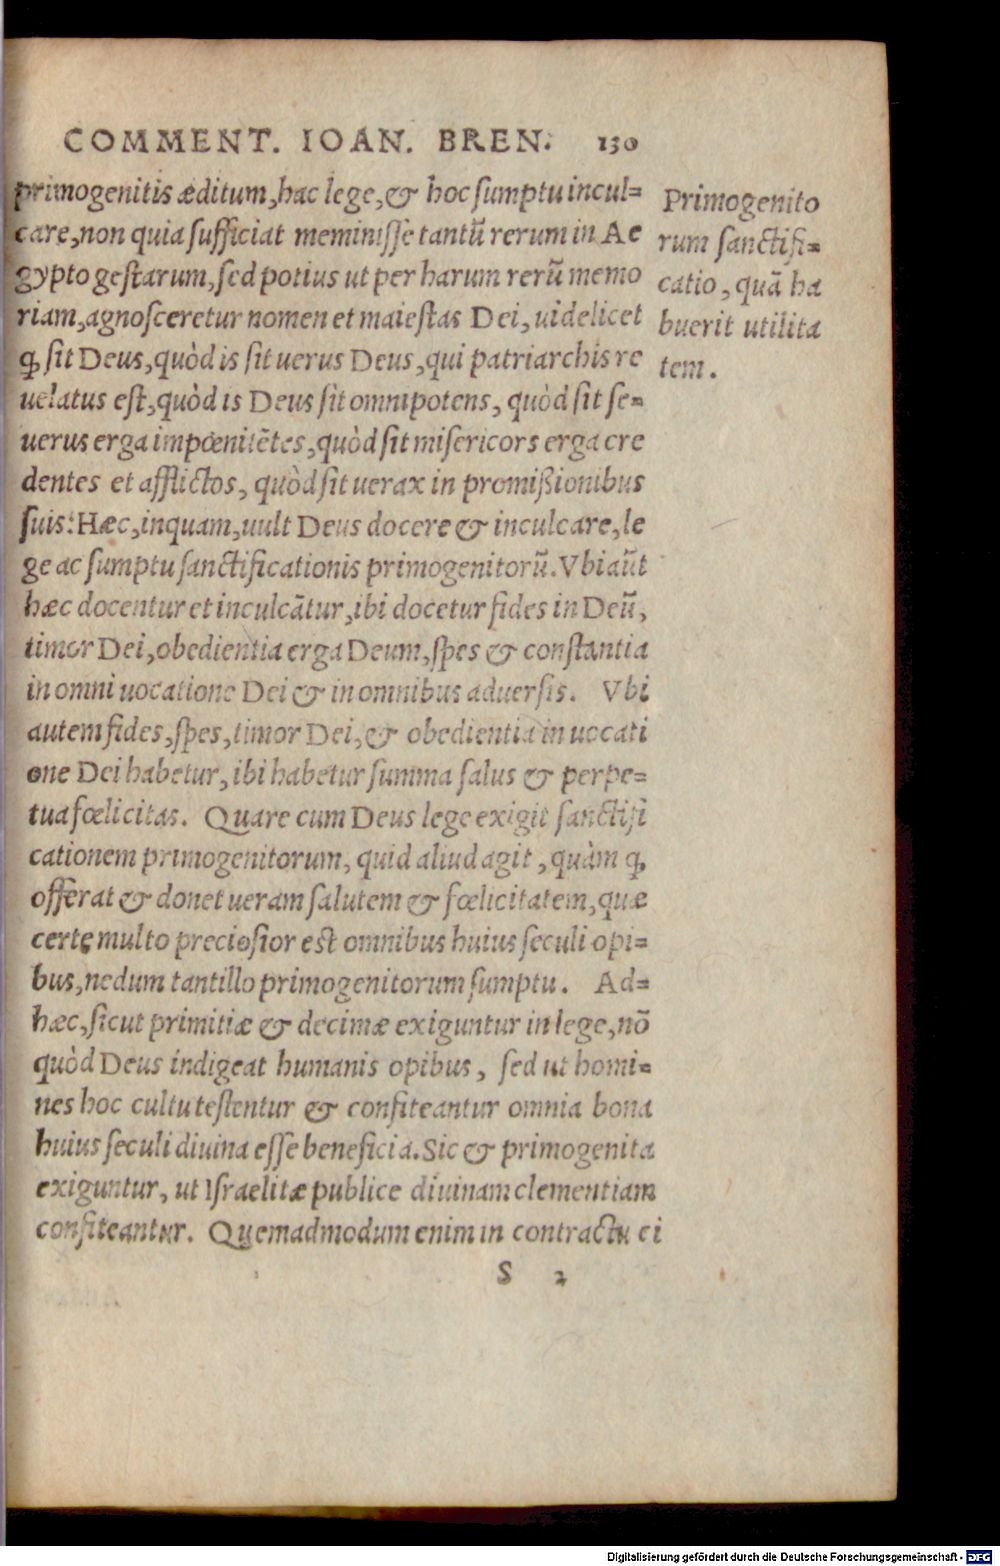 COMMENT. IOAN. BREN. 130
primogenitis æditum, hac lege, & hoc sumptu incul=
care, non quia sufficiat meminisse tantũ rerum in Ae
gypto gestarum, sed potius ut per harum rerũ memo
riam, agnosceretur nomen et maiestas Dei, uidelicet
ꝙ sit Deus, quòd is sit uerus Deus, qui patriarchis re
uelatus est, quòd is Deus sit omnipotens, quòd sit se=
uerus erga impœnitẽtes, quòd sit misericors erga cre
dentes et afflictos, quòd sit uerax in promißionibus
suis: Hæc, inquam, uult Deus docere & inculcare, le
ge ac sumptu sanctificationis primogenitorũ. Vbi aũt
hæc docentur et inculcãtur, ibi docetur fides in Deũ,
timor Dei, obedientia erga Deum, spes & constantia
in omni uocatione Dei & in omnibus aduersis. Vbi
autem fides, spes, timor Dei, & obedientia in uocati
one Dei habetur, ibi habetur summa salus & perpe=
tua fœlicitas. Quare cum Deus lege exigit sanctifi
cationem primogenitorum, quid aliud agit, quàm ꝙ
offerat & donet ueram salutem & fœlicitatem, quæ
certę multo preciosior est omnibus huius seculi opi=
bus, nedum tantillo primogenitorum sumptu. Ad=
hæc, sicut primitiæ & decimæ exiguntur in lege, nõ
quòd Deus indigeat humanis opibus, sed ut homi=
nes hoc cultu testentur & confiteantur omnia bona
huius seculi diuina esse beneficia. Sic & primogenita
exiguntur, ut Israelitæ publice diuinam clementiam
confiteantur. Quemadmodum enim in contractu ei
S 2
Primogenito
rum sanctifi=
catio, quã ha
buerit utilita
tem.
Digitalisierung gefördert durch die Deutsche Forschungsgemeinschaft - DFG